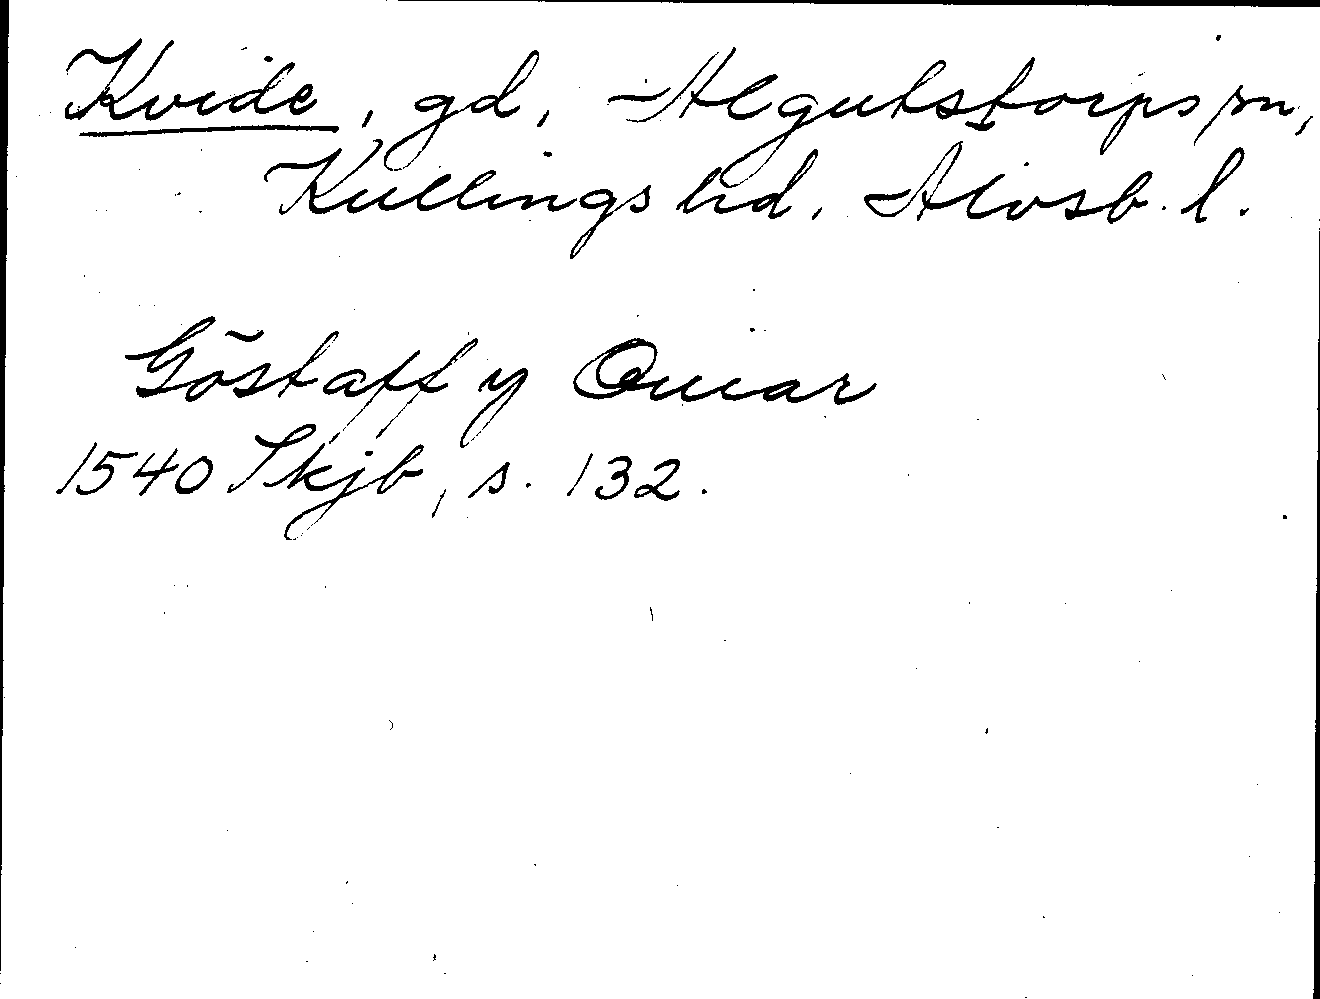 Kvide, gd, Algutstorps sn,
Kullings hd. Älvsb. l.
Göstaff y Quiar
1540 Skjb, s. 132.